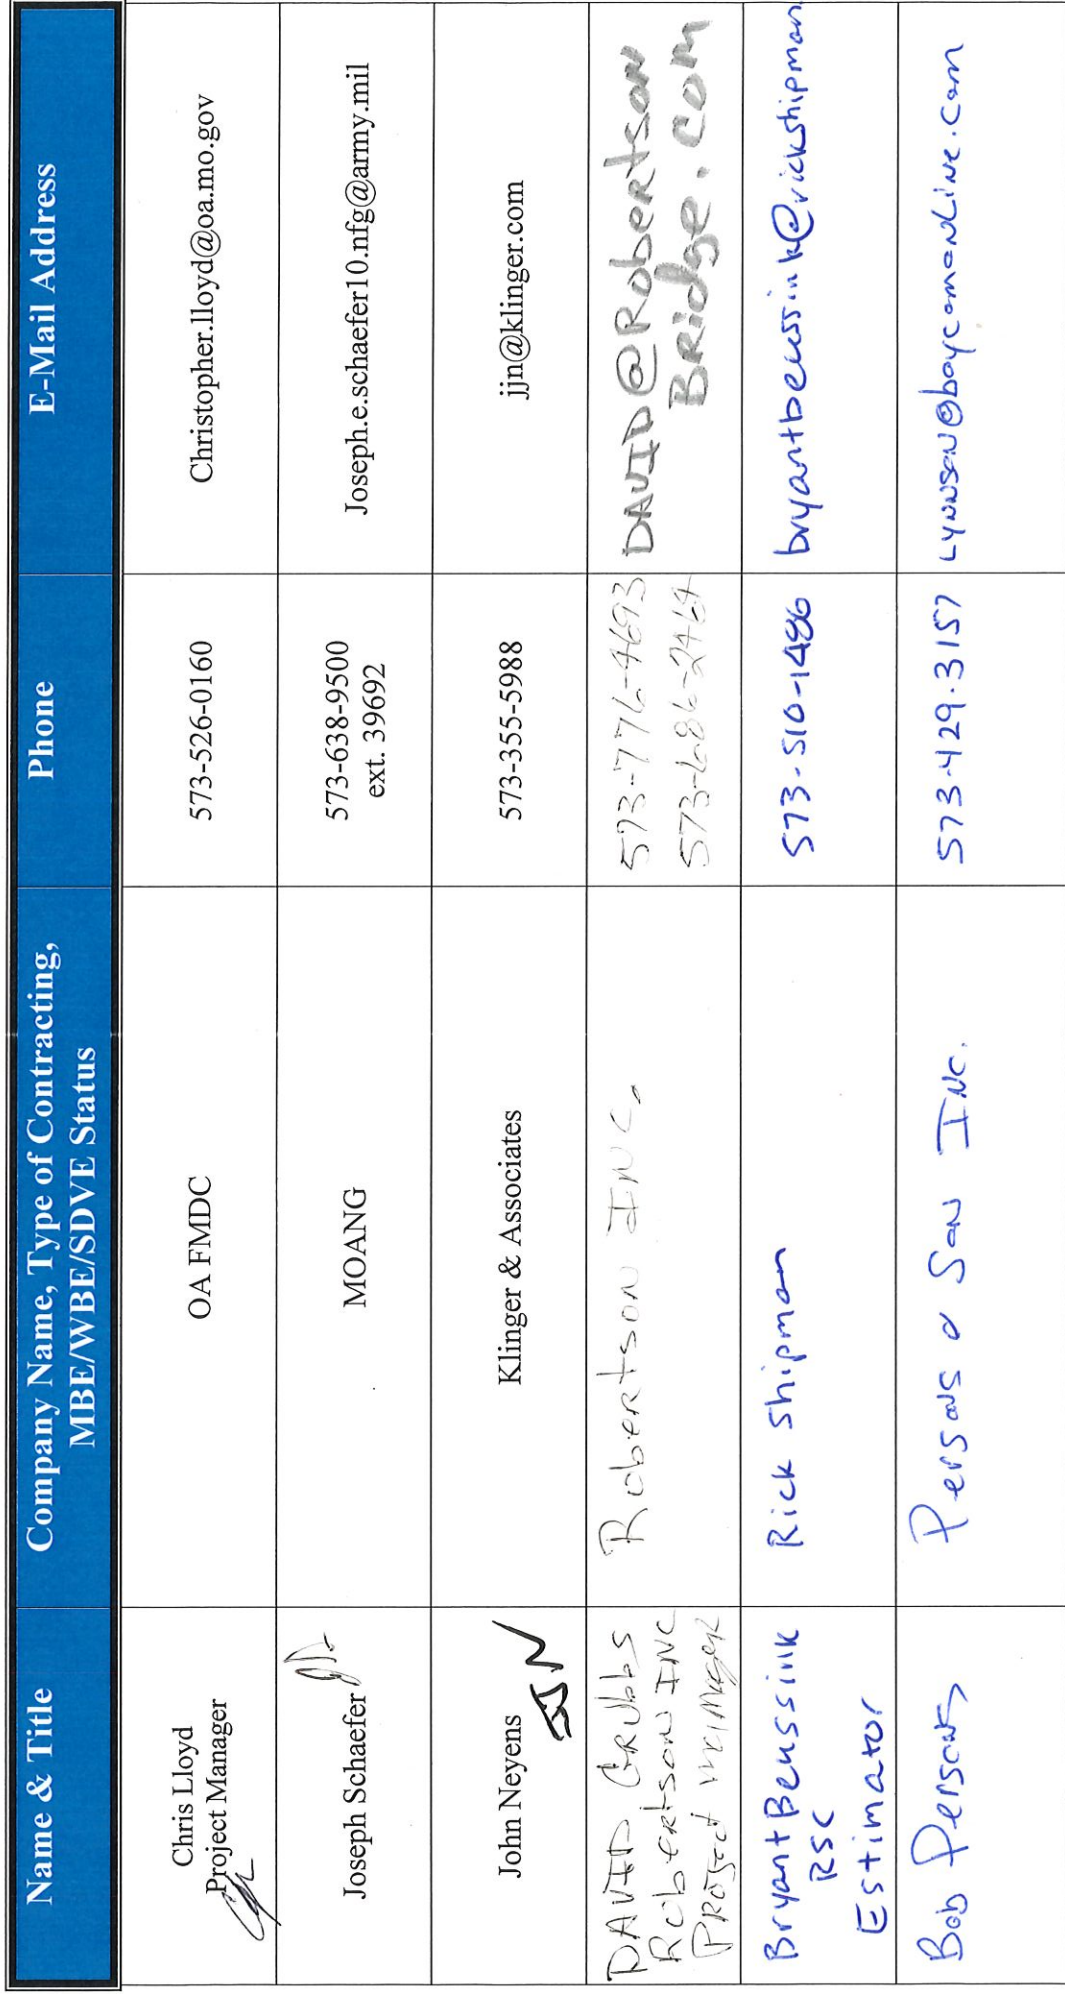 Name & Title
Company Name, Type of Contracting,
MBE/WBE/SDVE Status
Phone
E-Mail Address
Chris Lloyd
Project Manager
OA FMDC
573-526-0160
Christopher.lloyd@oa.mo.gov
Joseph Schaefer
MOANG
573-638-9500
ext. 39692
Joseph.e.schaefer10.nfg@army.mil
John Neyens
JJN
Klinger & Associates
573-355-5988
jjn@klinger.com
DAVID GRUbbS
RobertSon INC
PROJect MANAger
RobertSon INC.
573-776-4693
573-686-2464
DAVID@RobeRtSon
BRidge.com
Bryant Beussink
RSC
Estimator
Rick Shipman
573-510-1486
bryantbeussink@rickshipman
Bob Persons
Persons & Son INC.
573-429-3157